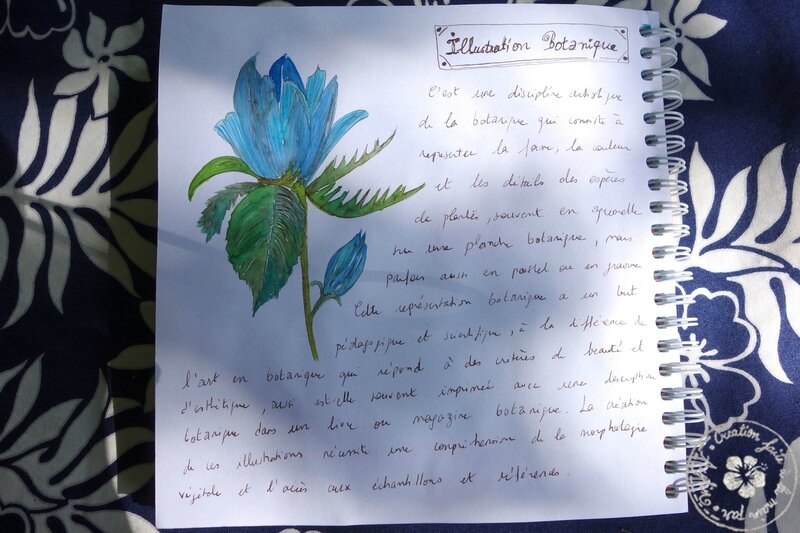 Illustration Botanique
C'est une discipline artistique
de la botanique qui consiste à
représenter la forme, la couleur
et les détails des espèces
de plantes, souvent en aquarelle
sur une planche botanique, mais
parfois aussi en pastel ou en gravure
Cette représentation botanique a un but
pédagogique et scientifique, à la différence de
l'art en botanique qui répond à des critères de beauté et
d'esthétique, aussi est-elle souvent imprimée avec une description
botanique dans un livre ou magazine botanique. La création
de ces illustrations nécessite une compréhension de la morphologie
végétale et l'accès aux échantillons et références.
Création faite à la main par